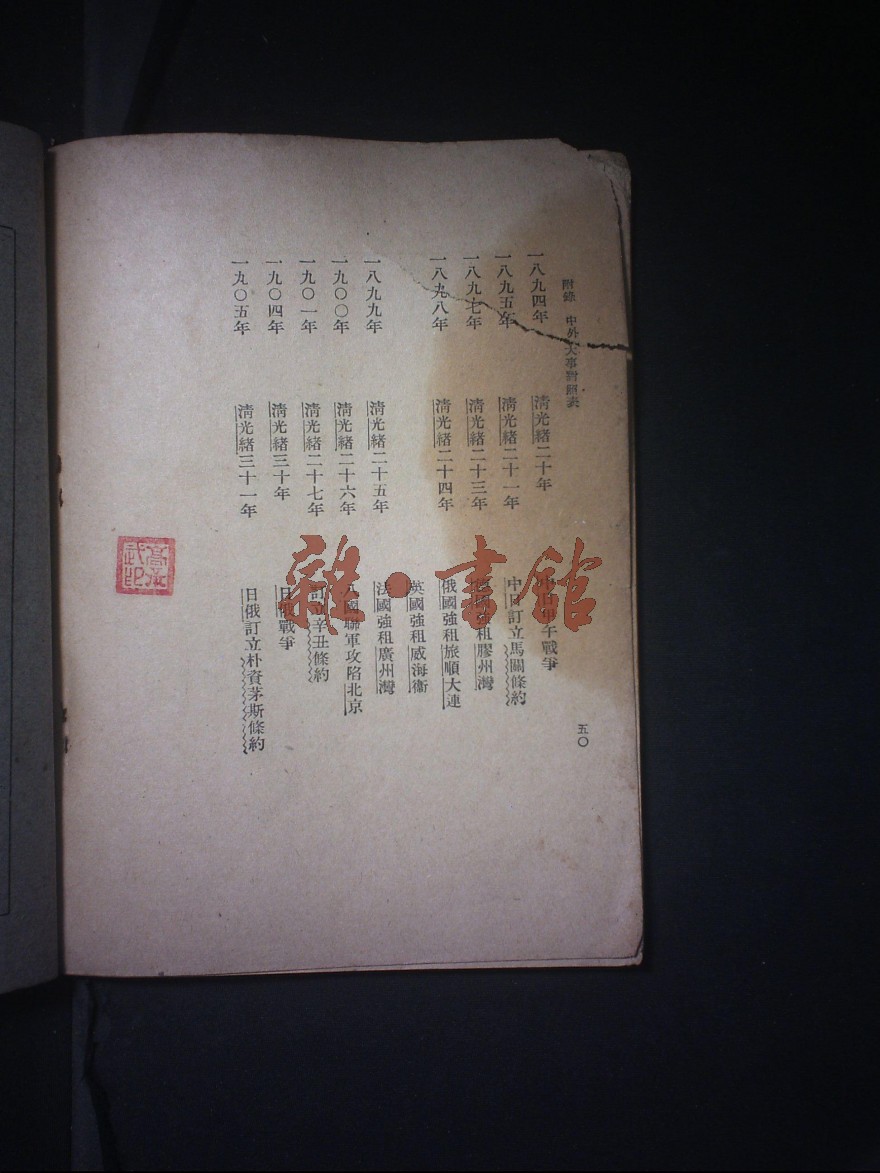 附錄 中外大事對照表
五〇
一八九四年 清光緒二十年 中日甲午戰爭
一八九五年 清光緒二十一年 中日訂立馬關條約
一八九七年 清光緒二十三年 德國強租膠州灣
一八九八年 清光緒二十四年 俄國強租旅順大連
英國強租威海衞
一八九九年 清光緒二十五年 法國強租廣州灣
一九〇〇年 清光緒二十六年 八國聯軍攻陷北京
一九〇一年 清光緒二十七年 訂立辛丑條約
一九〇四年 清光緒三十年 日俄戰爭
一九〇五年 清光緒三十一年 日俄訂立朴資茅斯條約
雜·書館